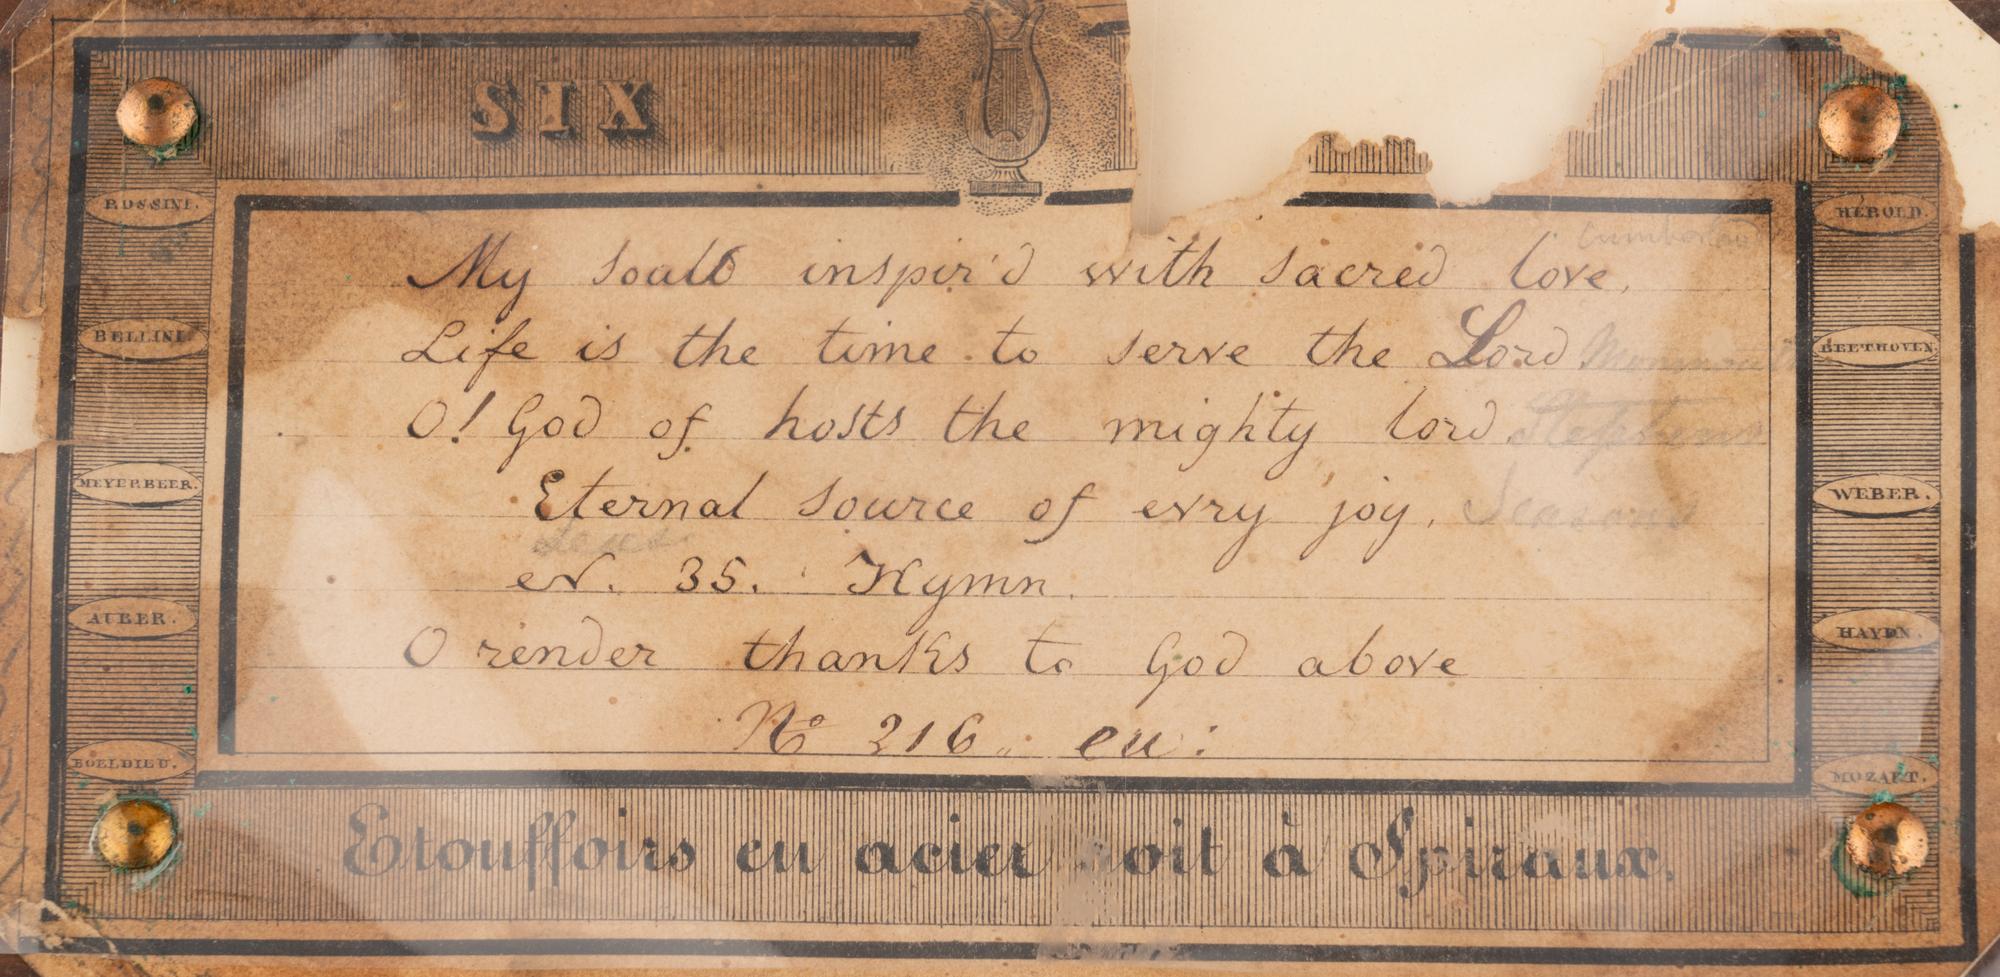 SIX
ROSSINI.
HÉROLD.
My soul inspir'd with sacred love,
BELLINI.
Life is the time to serve the Lord Monmouth
BEETHOVEN.
O! God of hosts the mighty lord Stephens
Eternal source of evry joy. Seasons
MEYERBEER.
WEBER.
ev. 35. Hymn.
AUBER.
HAYDN.
O render thanks to God above
No 216.
BOELDIEU.
MOZART.
Etouffoirs en acier soit à Spiraux.